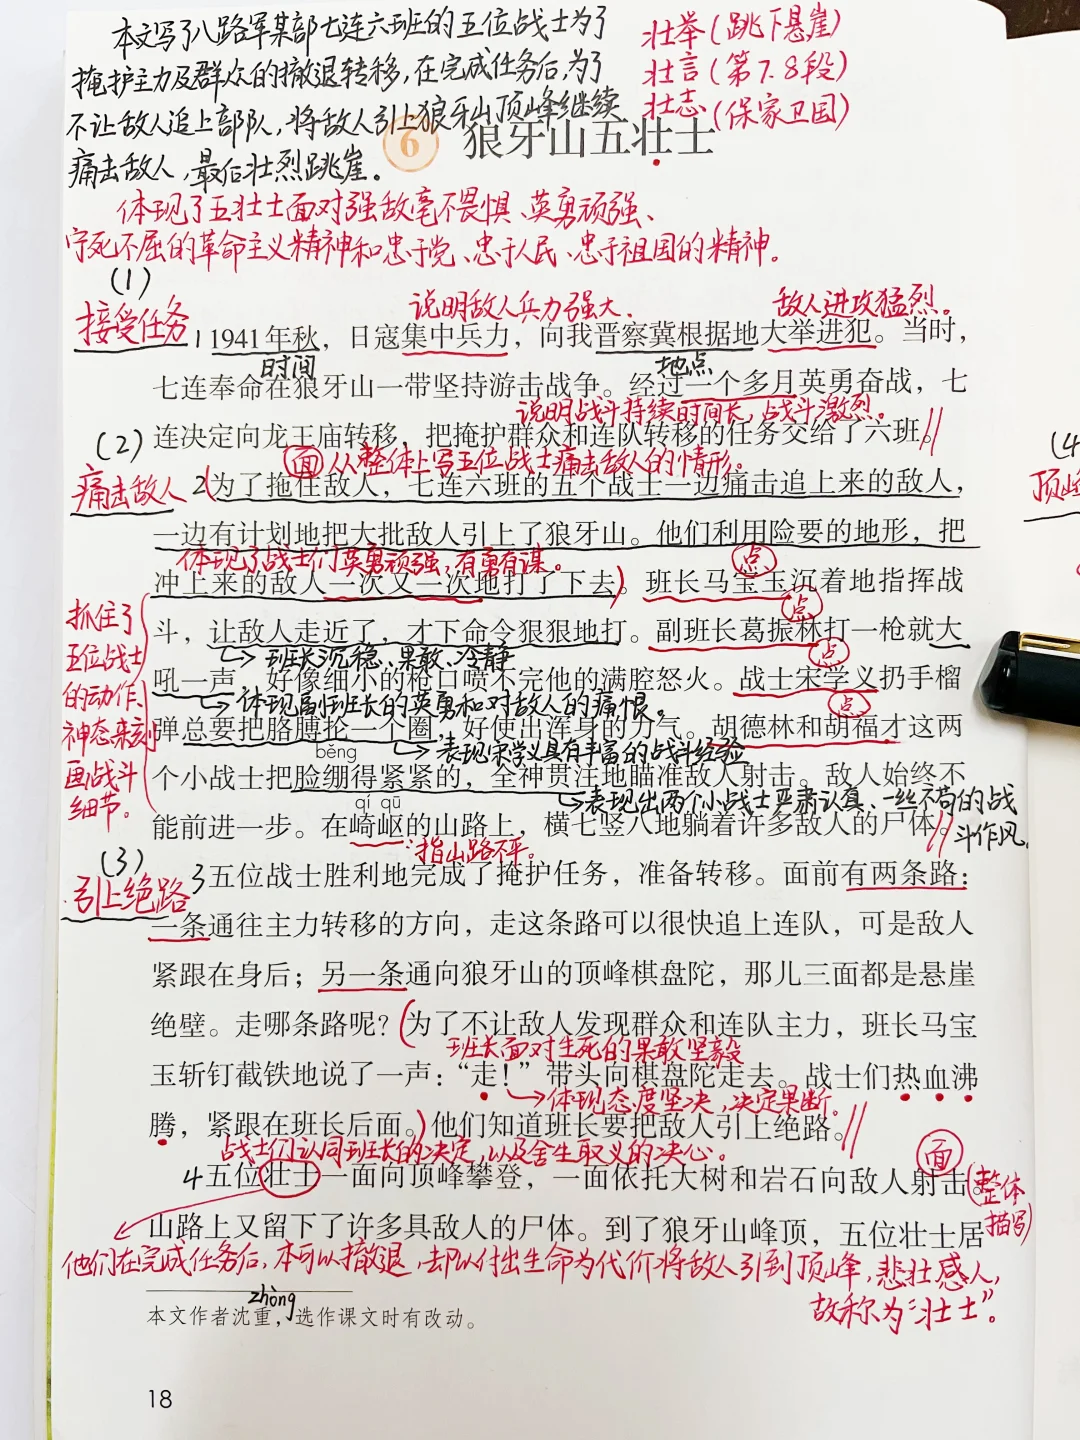 本文写了八路军某部七连六班的五位战士为了
掩护主力及群众的撤退转移,在完成任务后,为了
不让敌人追上部队,将敌人引上狼牙山顶峰继续
痛击敌人,最后壮烈跳崖。
壮举(跳下悬崖)
壮言(第7.8段)
壮志(保家卫国)
6 狼牙山五壮士
体现了五壮士面对强敌毫不畏惧、英勇顽强、
宁死不屈的革命主义精神和忠于党、忠于人民、忠于祖国的精神。
(1)
接受任务
说明敌人兵力强大.
敌人进攻猛烈。
1 1941年秋,日寇集中兵力,向我晋察冀根据地大举进犯。当时,
时间
地点
七连奉命在狼牙山一带坚持游击战争。经过一个多月英勇奋战,七
说明战斗持续时间长,战斗激烈。
连决定向龙王庙转移,把掩护群众和连队转移的任务交给了六班。
(2)
痛击敌人
面 从整体上写五位战士痛击敌人的情形。
2(为了拖住敌人,七连六班的五个战士一边痛击追上来的敌人,
一边有计划地把大批敌人引上了狼牙山。他们利用险要的地形,把
体现了战士们英勇顽强,有勇有谋。
点
冲上来的敌人一次又一次地打了下去)。班长马宝玉沉着地指挥战
点
斗,让敌人走近了,才下命令狠狠地打。副班长葛振林打一枪就大
班长沉稳、果敢、冷静
点
吼一声,好像细小的枪口喷不完他的满腔怒火。战士宋学义扔手榴
体现副班长的英勇和对敌人的痛恨。
点
弹总要把胳膊抡一个圈,好使出浑身的力气。胡德林和胡福才这两
běng
表现宋学义具有丰富的战斗经验
个小战士把脸绷得紧紧的,全神贯注地瞄准敌人射击。敌人始终不
qí qū
表现出两个小战士严肃认真、一丝不苟的战
斗作风。
能前进一步。在崎岖的山路上,横七竖八地躺着许多敌人的尸体。
:指山路不平。
抓住了
五位战士
的动作、
神态来刻
画战斗
细节。
(3)
引上绝路
3五位战士胜利地完成了掩护任务,准备转移。面前有两条路:
一条通往主力转移的方向,走这条路可以很快追上连队,可是敌人
紧跟在身后;另一条通向狼牙山的顶峰棋盘陀,那儿三面都是悬崖
绝壁。走哪条路呢?(为了不让敌人发现群众和连队主力,班长马宝
班长面对生死的果敢坚毅
玉斩钉截铁地说了一声:“走!”带头向棋盘陀走去。战士们热血沸
体现态度坚决,决定果断。
腾,紧跟在班长后面。)他们知道班长要把敌人引上绝路。
战士们认同班长的决定,以及舍生取义的决心。
面
4五位壮士一面向顶峰攀登,一面依托大树和岩石向敌人射击。
(整体
描写)
山路上又留下了许多具敌人的尸体。到了狼牙山峰顶,五位壮士居
他们在完成任务后,本可以撤退,却以付出生命为代价将敌人引到顶峰,悲壮感人,
故称为“壮士”。
zhòng
本文作者沈重,选作课文时有改动。
18
(4
顶峰